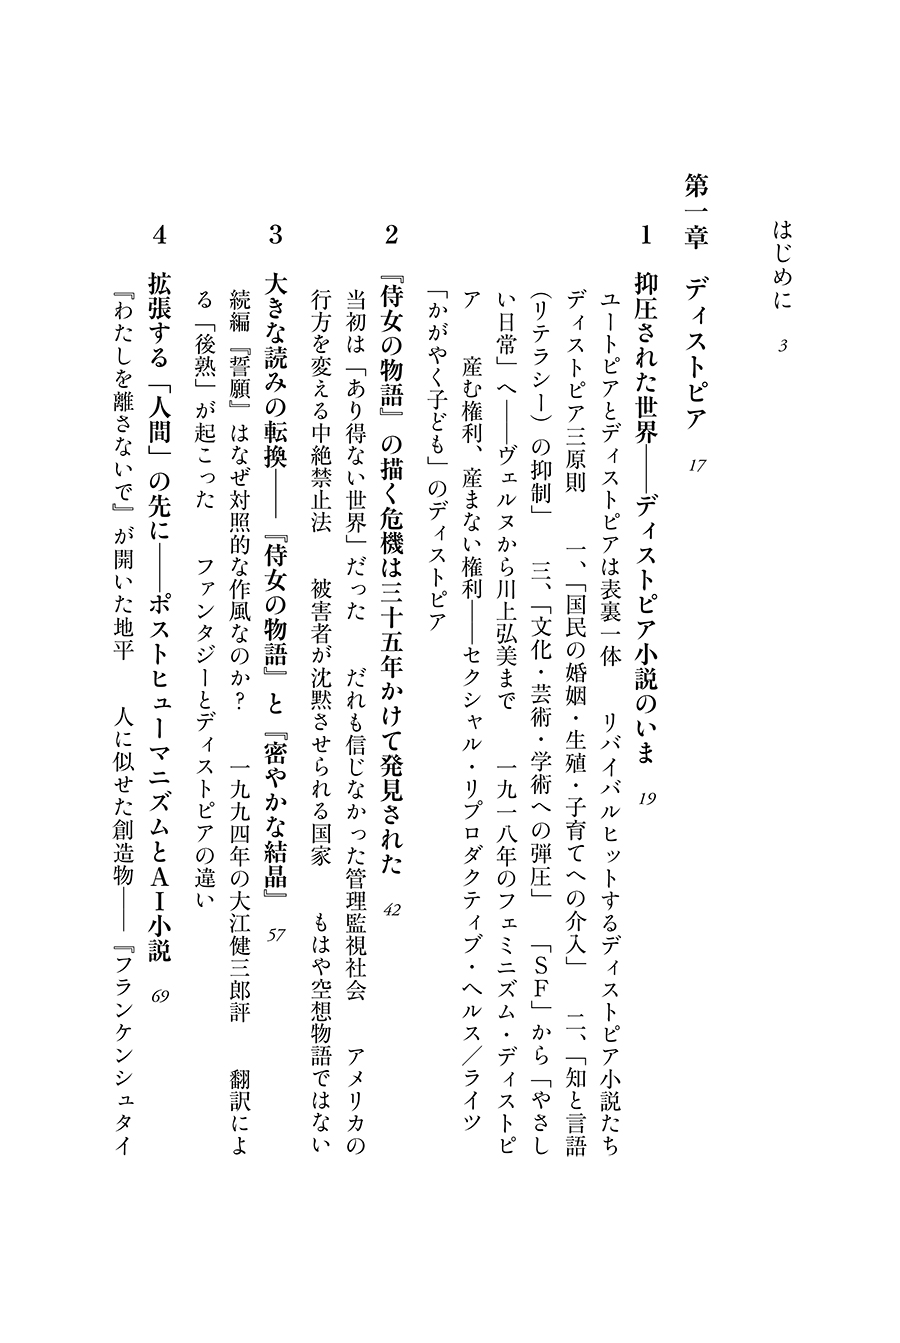 はじめに 3
第一章 ディストピア 17
1 抑圧された世界――ディストピア小説のいま 19
ユートピアとディストピアは表裏一体 リバイバルヒットするディストピア小説たち
ディストピア三原則 一、「国民の婚姻・生殖・子育てへの介入」 二、「知と言語
（リテラシー）の抑制」 三、「文化・芸術・学術への弾圧」 「ＳＦ」から「やさし
い日常」へ――ヴェルヌから川上弘美まで 一九一八年のフェミニズム・ディストピ
ア 産む権利、産まない権利――セクシャル・リプロダクティブ・ヘルス／ライツ
「かがやく子ども」のディストピア
2 『侍女の物語』の描く危機は三十五年かけて発見された 42
当初は「あり得ない世界」だった だれも信じなかった管理監視社会 アメリカの
行方を変える中絶禁止法 被害者が沈黙させられる国家 もはや空想物語ではない
3 大きな読みの転換――『侍女の物語』と『密やかな結晶』 57
続編『誓願』はなぜ対照的な作風なのか？ 一九九四年の大江健三郎評 翻訳によ
る「後熟」が起こった ファンタジーとディストピアの違い
4 拡張する「人間」の先に――ポストヒューマニズムとＡＩ小説 69
『わたしを離さないで』が開いた地平 人に似せた創造物――『フランケンシュタイ